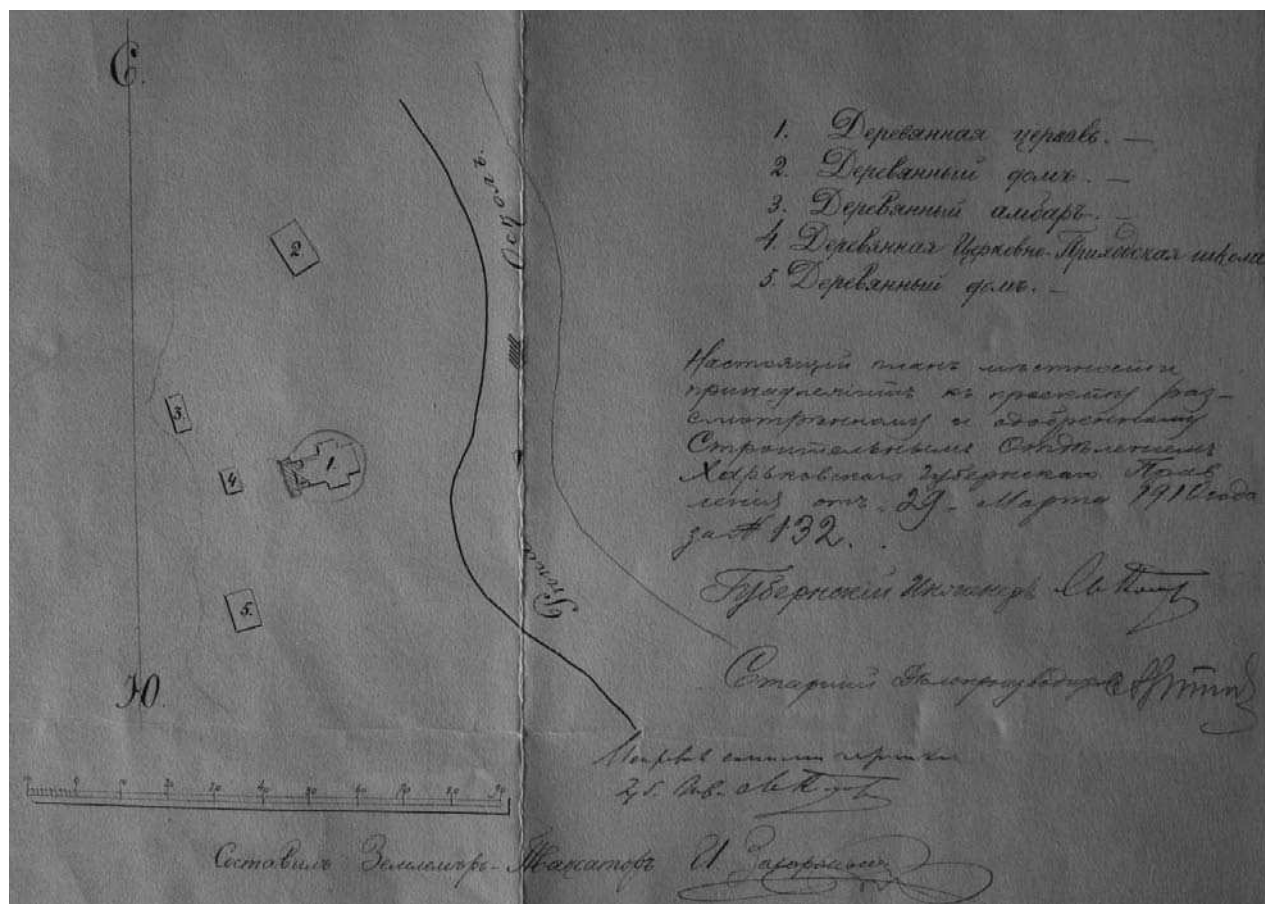 С.
1. Деревянная церковь. —
2. Деревянный домъ. —
3. Деревянный амбаръ. —
4. Деревянная Церковно-Приходская школа
5. Деревянный домъ. —
Рѣка Осколъ.
2
3.
4
1
5.
Настоящий планъ мѣстности
принадлежитъ къ проекту раз-
смотрѣнному и одобренному
Строительнымъ Отдѣленіемъ
Харьковскаго Губернскаго Прав
ленія отъ 29 Марта 1910 года
за № 132.
Губернскій Инженеръ
Старший Делопроизводитель
Ю.
10 0 10 20 30 40 50 60 70 80 90
Губ. Инж.
Составилъ Землемѣръ-Таксаторъ И